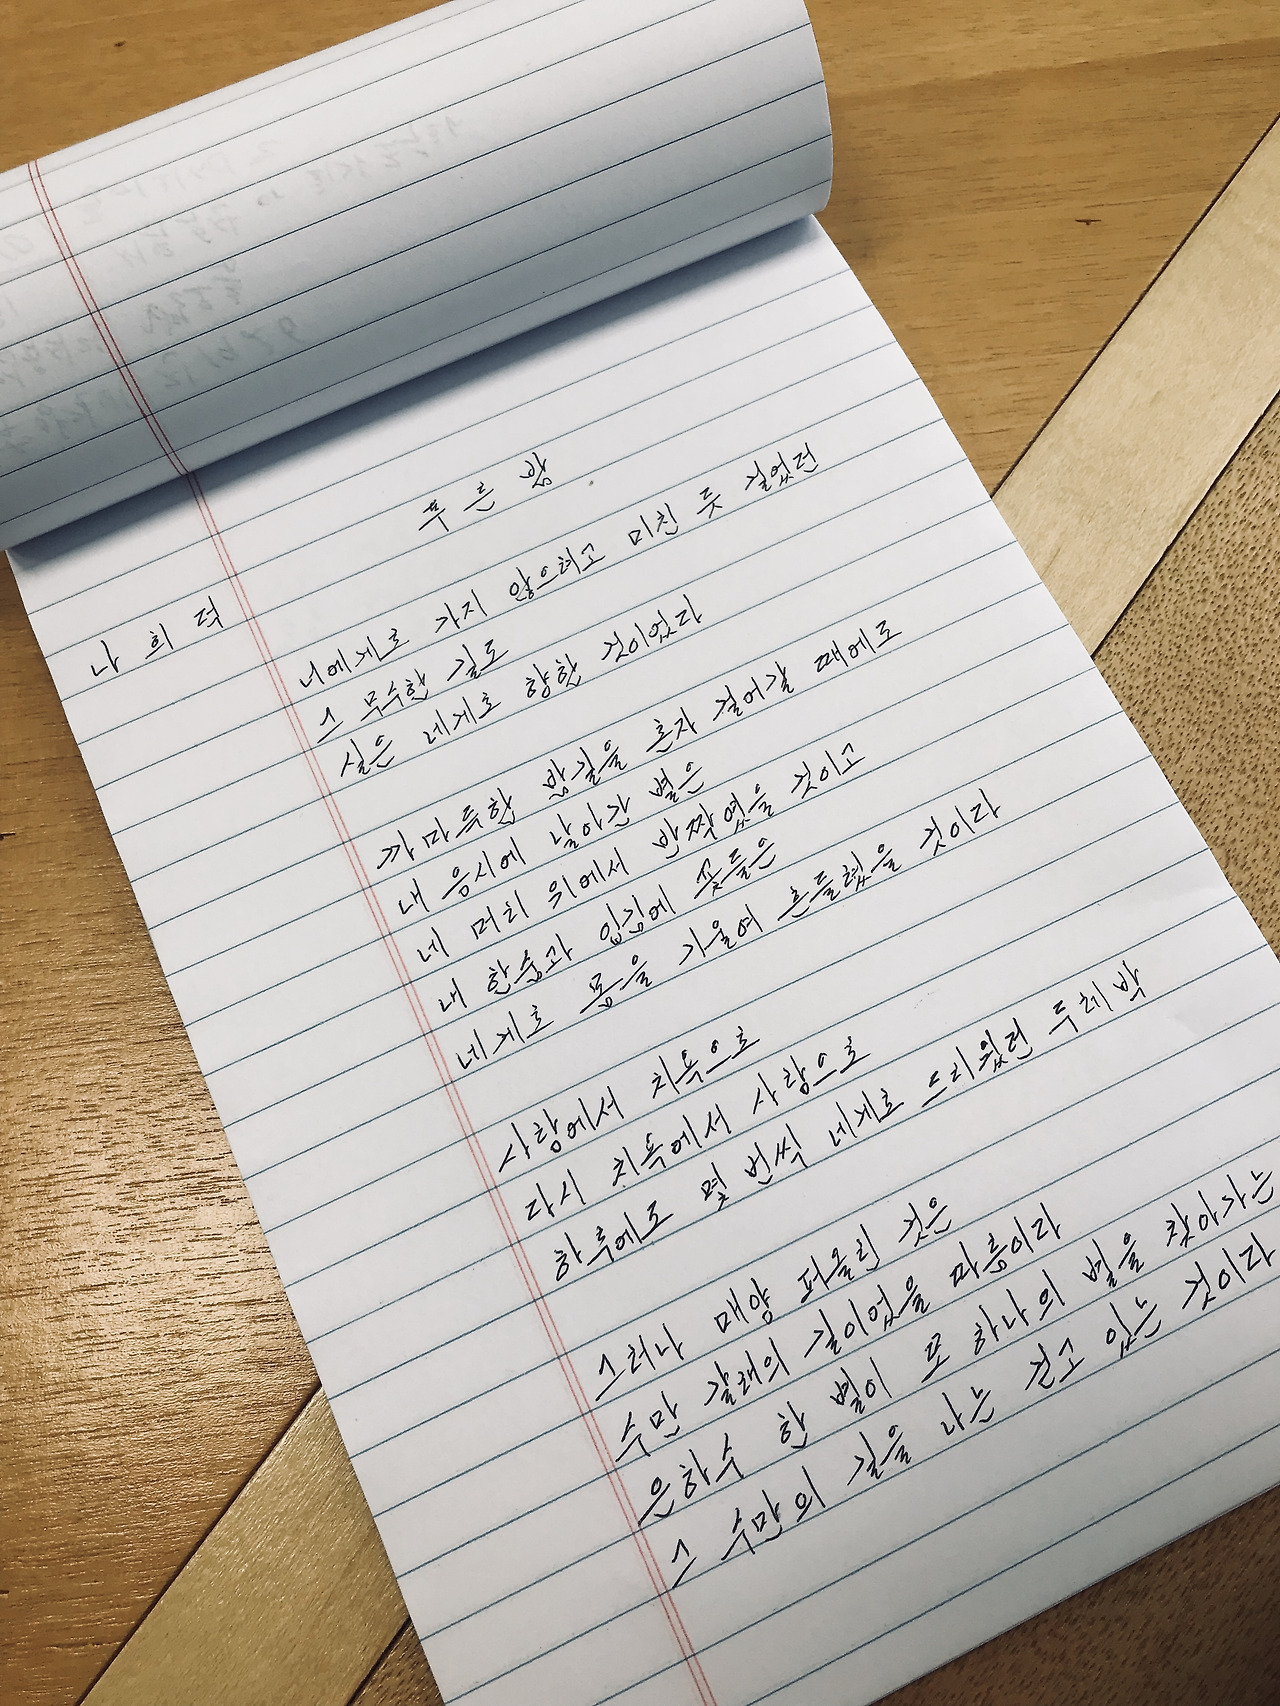 푸른 밤
나 희 덕
너에게로 가지 않으려고 미친 듯 걸었던
그 무수한 길도
실은 네게로 향한 것이었다
까마득한 밤길을 혼자 걸어갈 때에도
내 응시에 날아간 별은
네 머리 위에서 반짝였을 것이고
내 한숨과 입김에 꽃들은
네게로 몸을 기울여 흔들렸을 것이다
사랑에서 치욕으로
다시 치욕에서 사랑으로
하루에도 몇 번씩 네게로 드리웠던 두레박
그러나 매양 퍼올린 것은
수만 갈래의 길이었을 따름이다
은하수 한 별이 또 하나의 별을 찾아가는
그 수만의 길을 나는 걷고 있는 것이다